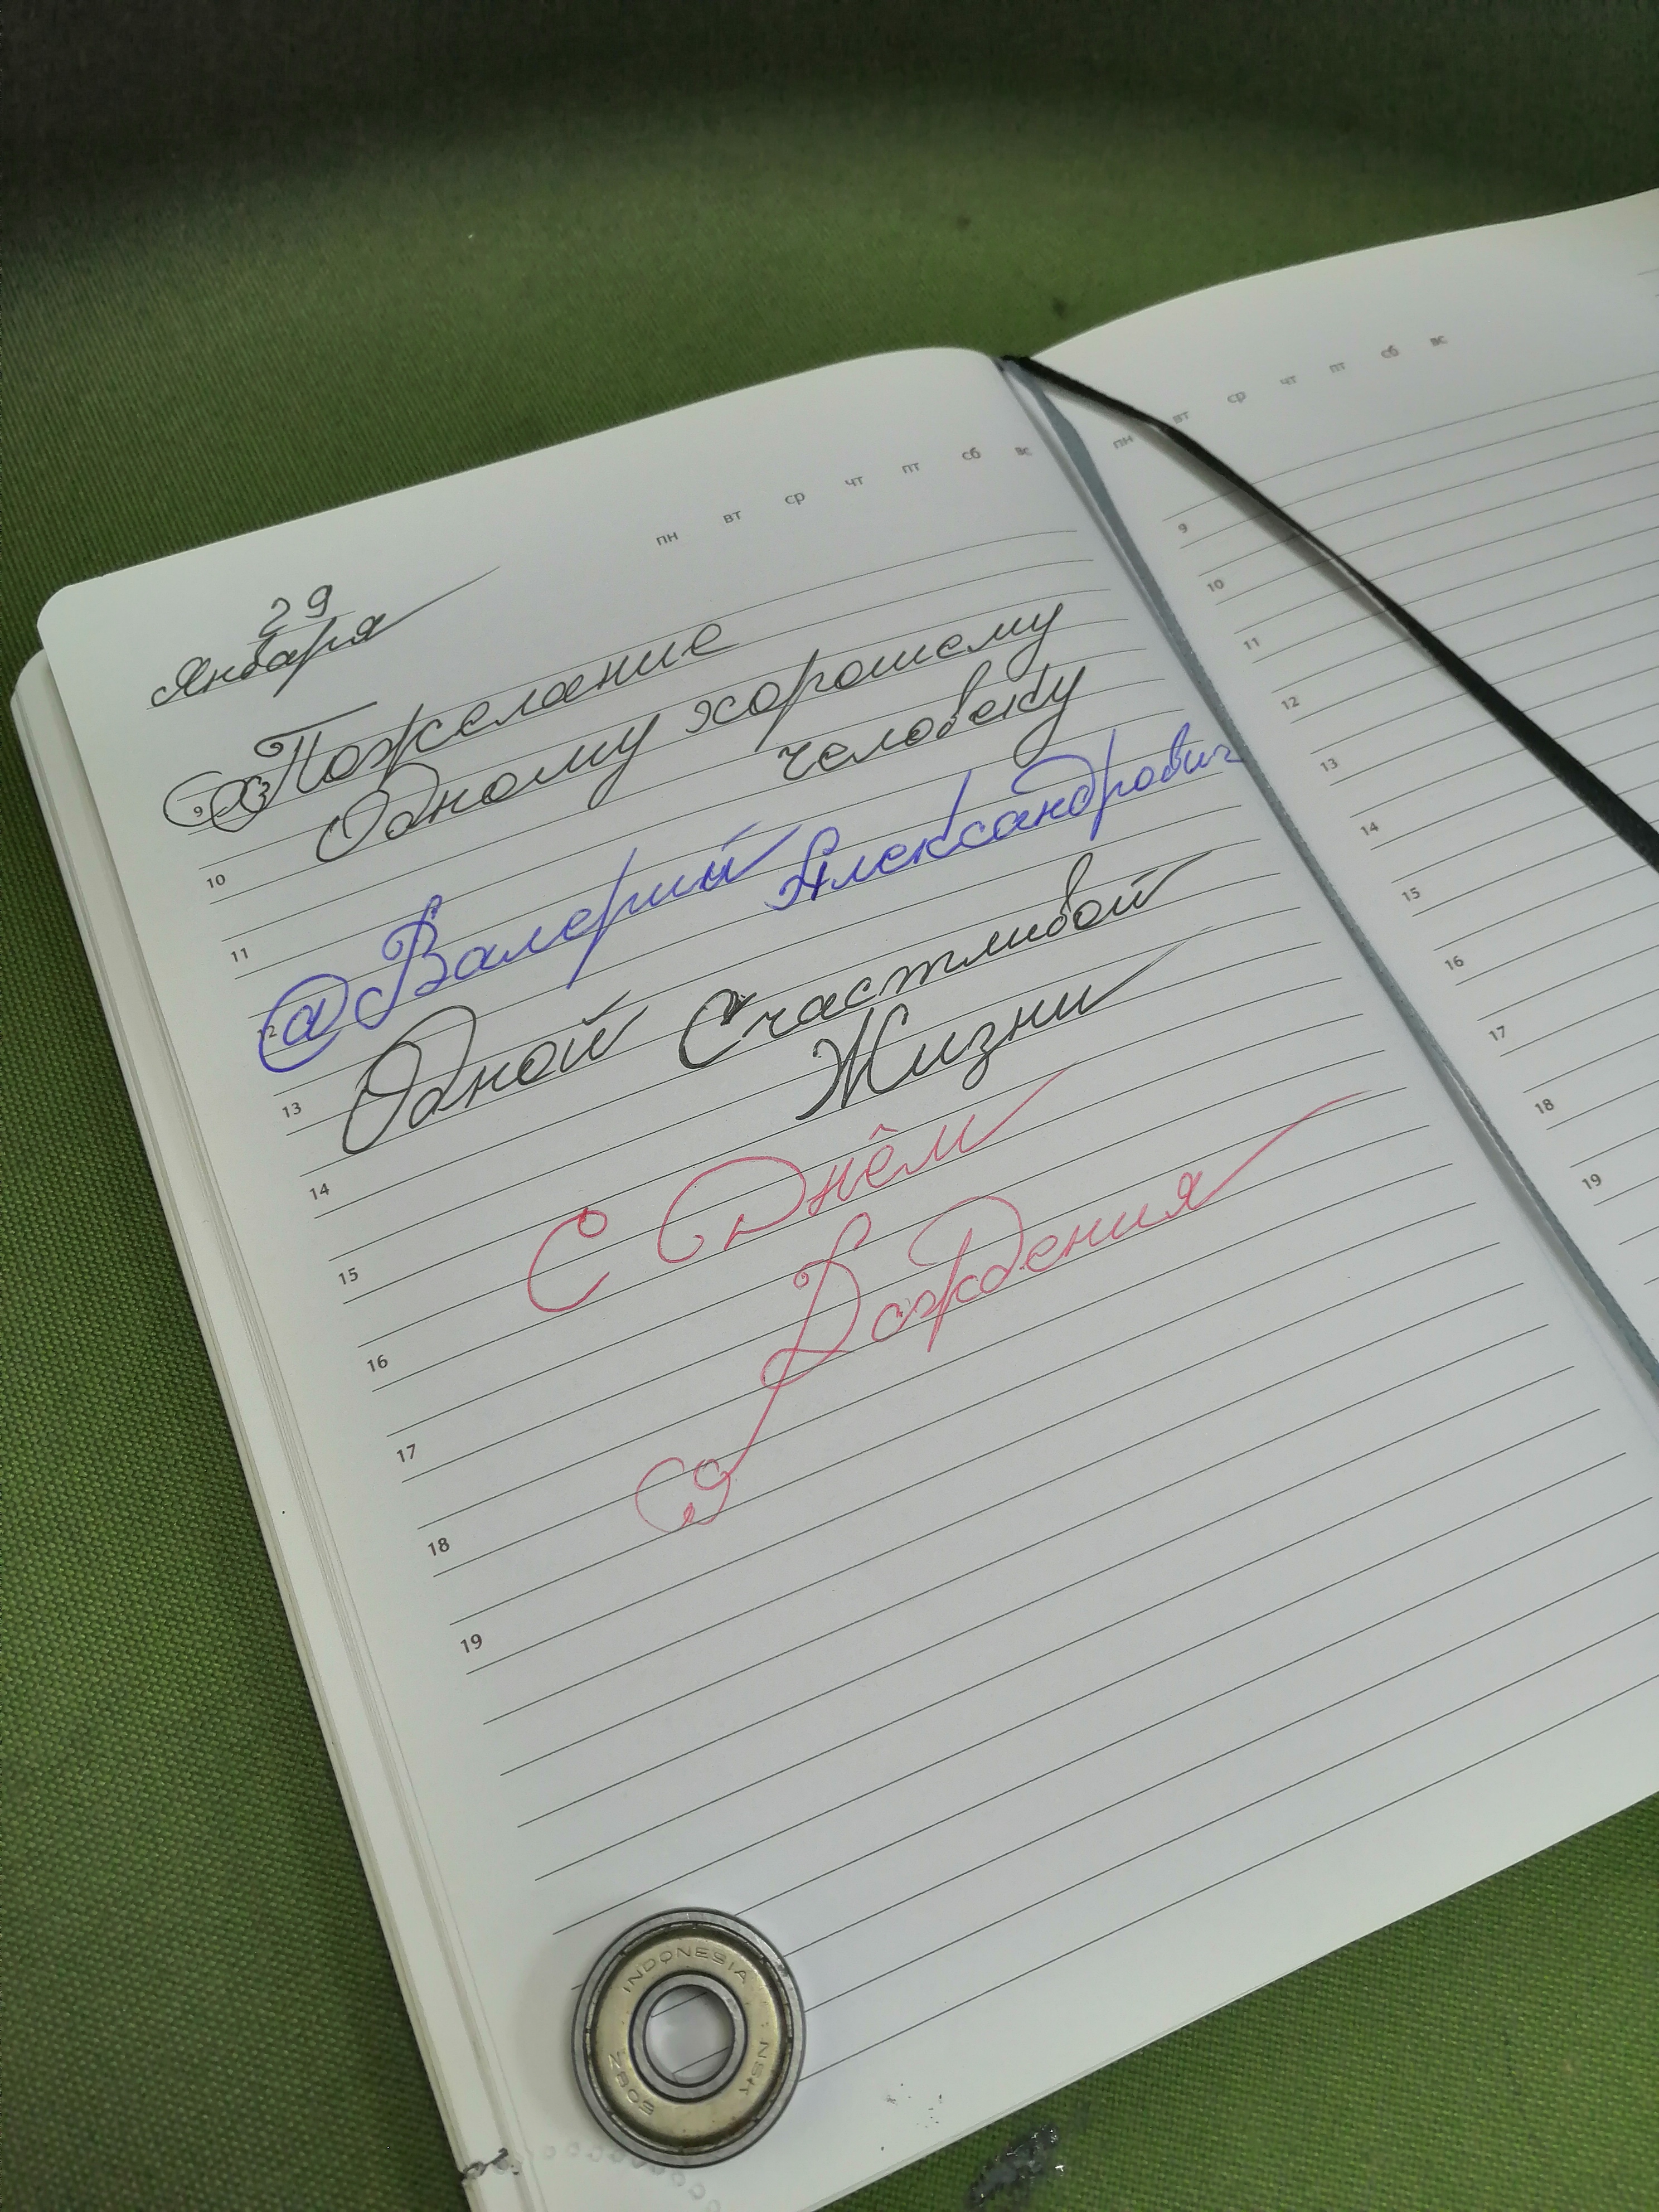 пн вт ср чт пт сб вс
29
Января
Пожелание
Одному хорошему
человеку
@Валерий Александрович
Одной Счастливой
Жизни
С Днём
Рождения
10
11
12
13
14
15
16
17
18
19
INDONESIA NSK 608Z
пн вт ср чт пт сб вс
9
10
11
12
13
14
15
16
17
18
19